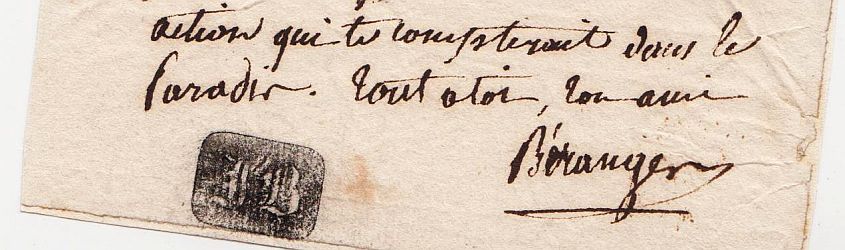 action qui te compterait dans le
Paradis. Tout a toi, ton ami
Béranger
JB